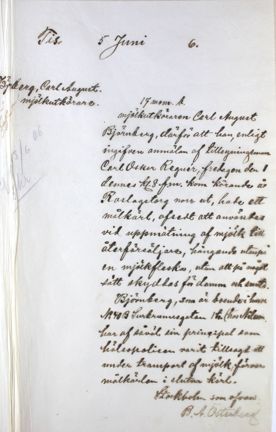 Tis. 5 Juni 6.
Björnberg, Carl August.
mjölkutkörare.
17 mom. b
mjölkutköraren Carl August
Björnberg, därför att han, enligt
ingifven anmälan af tillsyningsman
Carl Oskar Regner, fredagen den 1
dennes kl. 3 f.m. kom körande å
Roslagstorg norr ut, hade ett
mätkärl, afsedt att användas
vid uppmätning af mjölk till
återförsäljare, hängande utanpå
en mjölkflaska, utan att på något
sätt skyddas för damm och smuts.
Björnberg, som är boende i huset
No 40 B Surbrunnsgatan
har af såväl sin principal som
hälsopolisen varit tillsagd att
under transport af mjölk förvara
mätkärlen i slutna kärl.
Stockholm som ofvan.